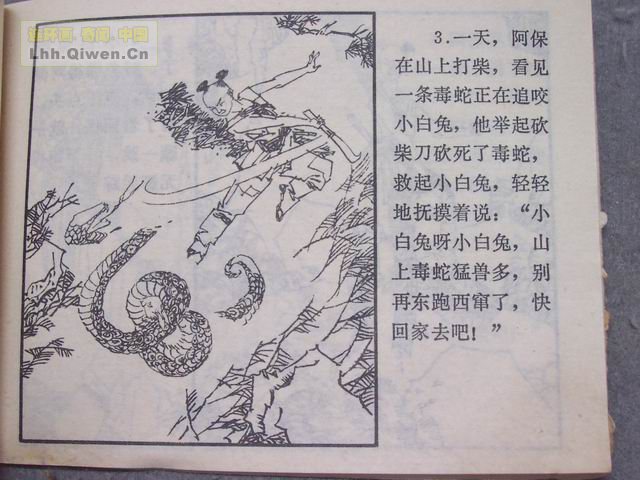 连环画·看图·中国
Lhh.Qiwen.Cn
3.一天，阿保
在山上打柴，看见
一条毒蛇正在追咬
小白兔，他举起砍
柴刀砍死了毒蛇，
救起小白兔，轻轻
地抚摸着说：“小
白兔呀小白兔，山
上毒蛇猛兽多，别
再东跑西窜了，快
回家去吧！”